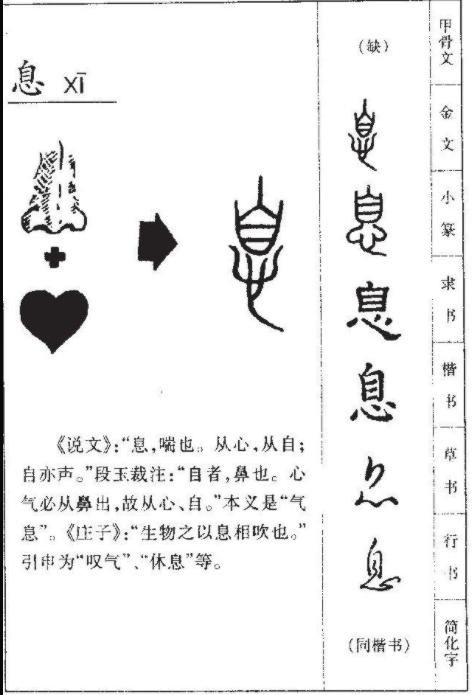 息 xī
《说文》:“息,喘也。从心,从自;
自亦声。”段玉裁注:“自者,鼻也。心
气必从鼻出,故从心、自。”本义是“气
息”。《庄子》:“生物之以息相吹也。”
引申为“叹气”、“休息”等。
(缺)
息
息
息
息
息
息
(同楷书)
甲骨文
金文
小篆
隶书
楷书
草书
行书
简化字